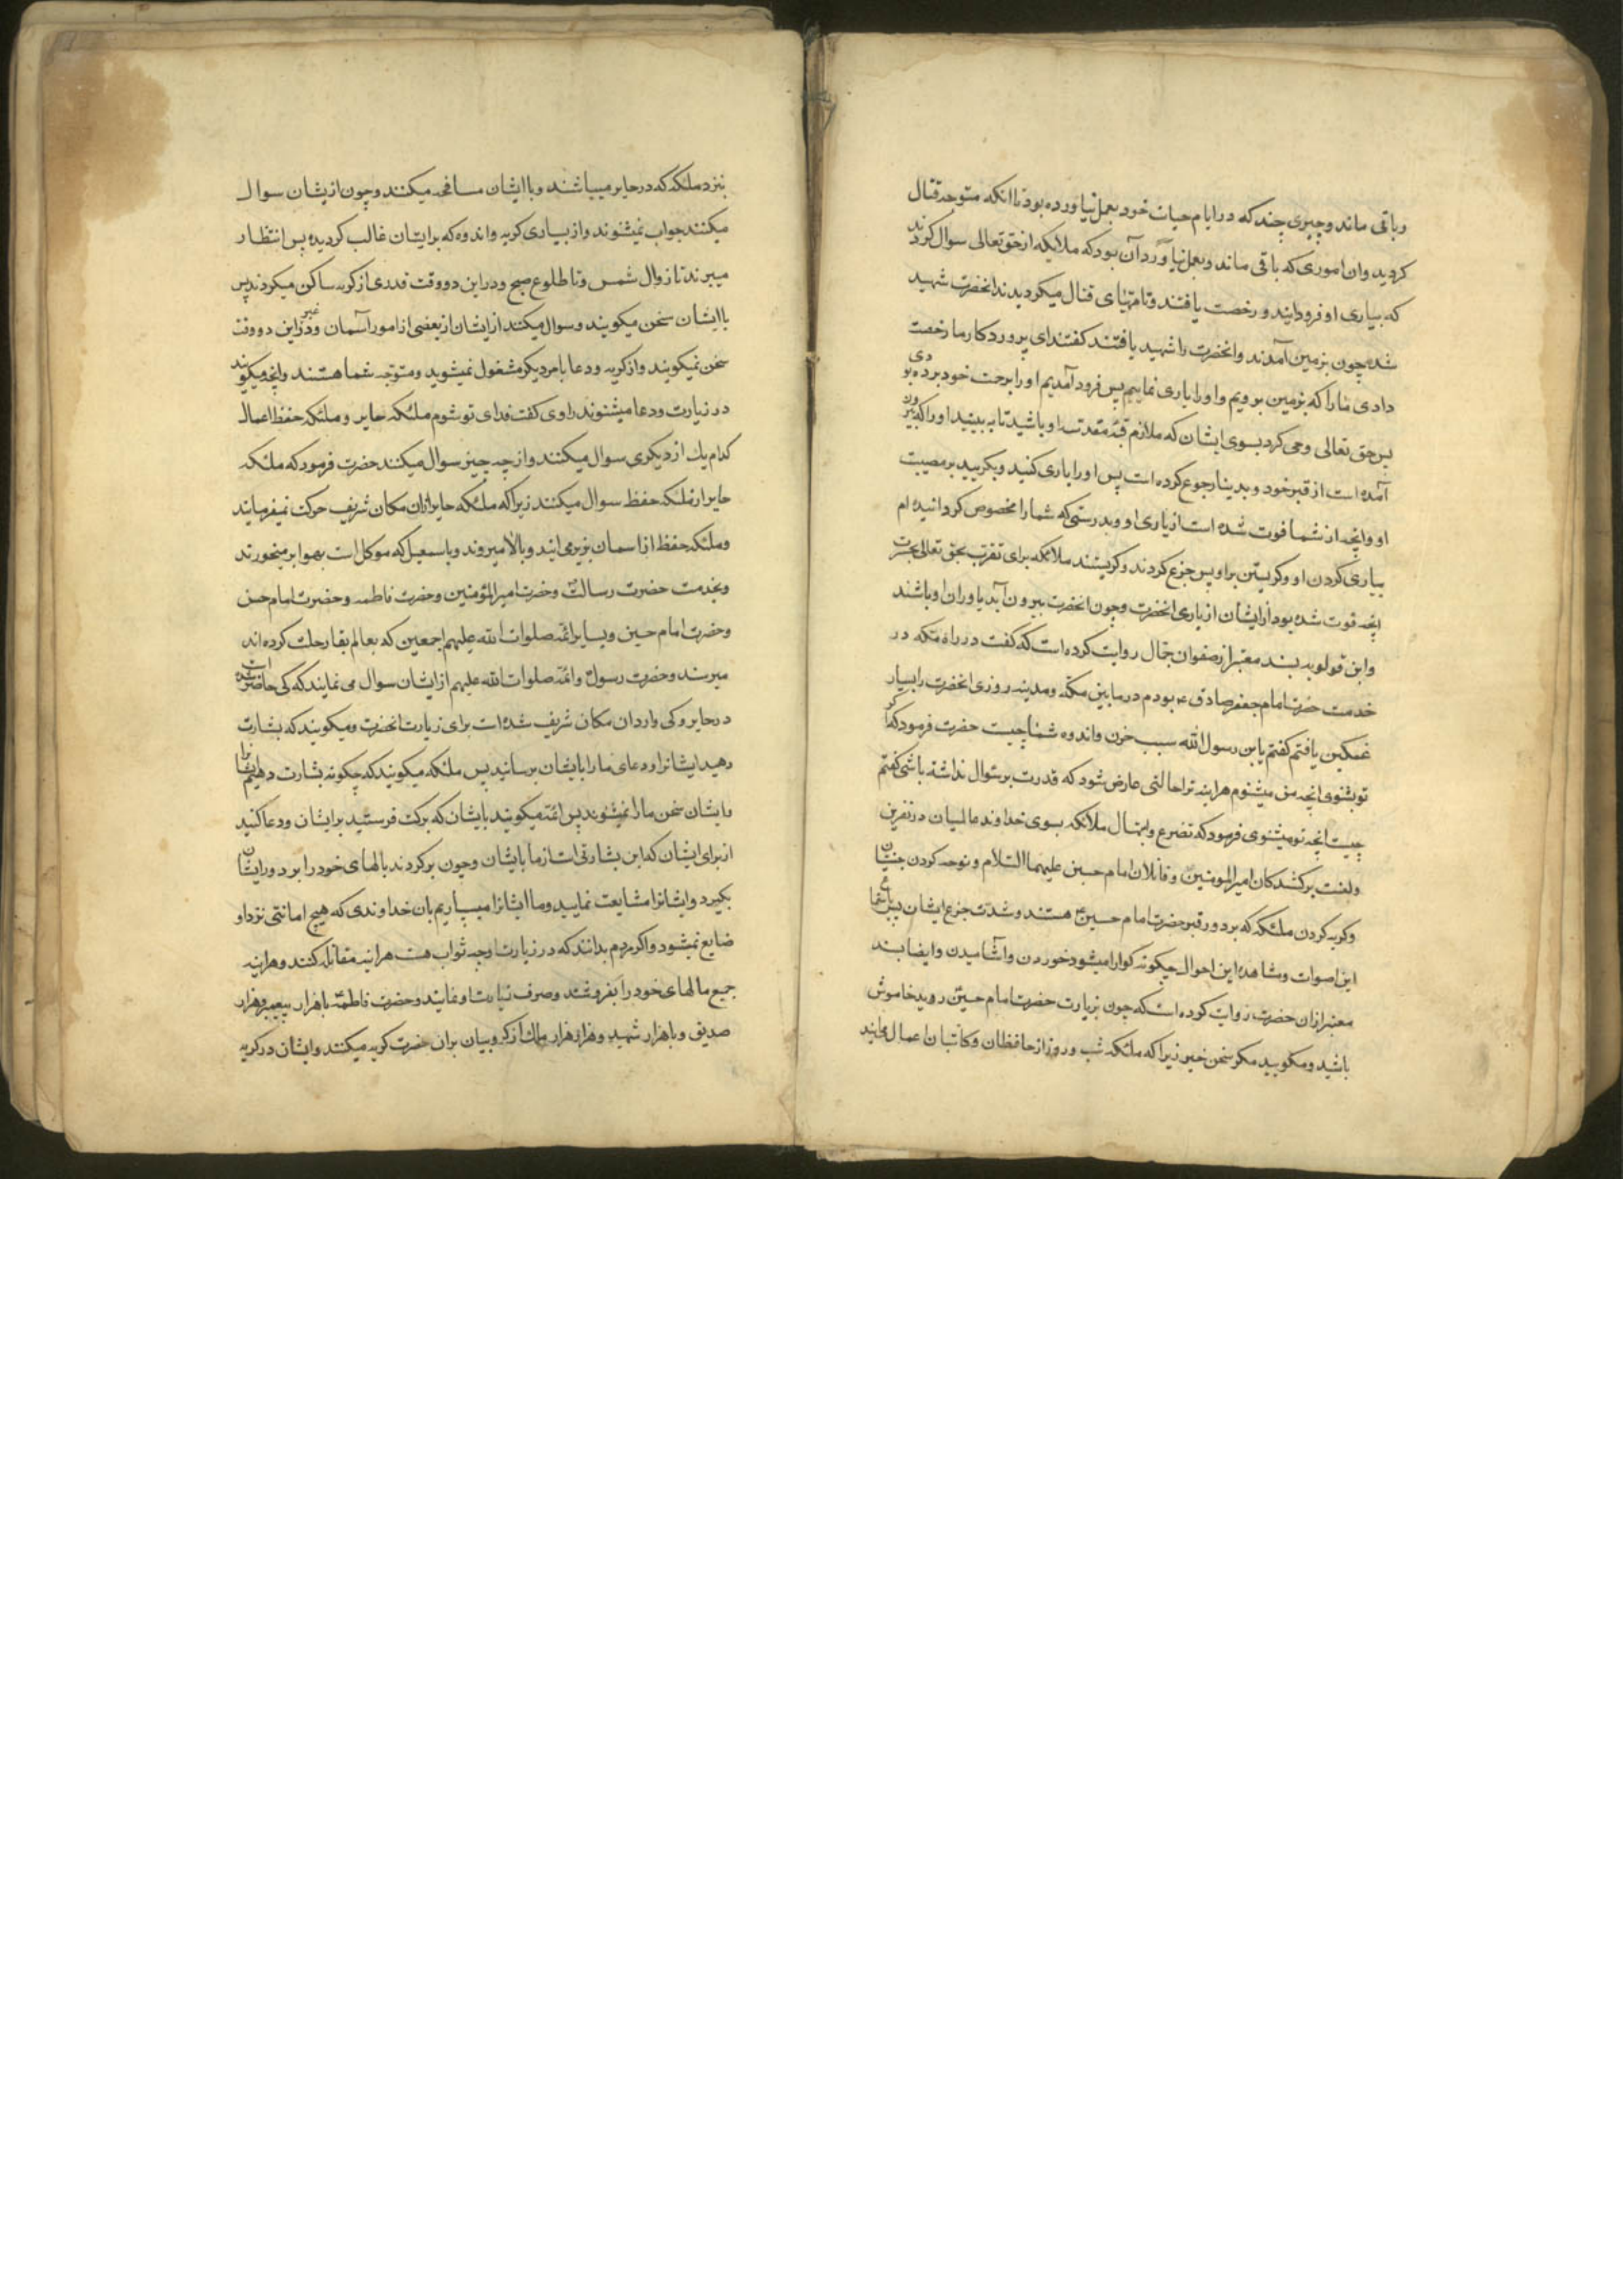 وباقی ماند وچیزی چند که در ایام حیات خود بعمل نیاورده بود تا انکه متوجه قتال
کردید وان اموری که باقی ماند وبعمل نیاورد آن بود که ملایکه از حق تعالی سوال کردند
که بیاری او فرود ایند و رخصت یافتند وتا مهیای قتال میکردیدند انحضرت شهید
شد چون بزمین آمدند وانحضرت را شهید یافتند کفتند ای پروردکار ما رخصت
دادی ما را که بزمین برویم واورا یاری نماییم پس فرود آمدیم اورا برحمت خود برده بودی
پس حق تعالی وحی کرد بسوی ایشان که ملازم قبه مقدسه او باشید تا به بینید اورا که بیرون
آمده است از قبر خود و بدینا رجوع کرده است پس اورا یاری کنید وبکریید بر مصیبت
او وانچه از شما فوت شده است از یاری او وبدرستی که شما را مخصوص کردانیده ام
بیاری کردن او وکریستن بر او پس جزع کردند وکریستند ملائکه برای تقرب بحق تعالی بحسرت
انچه فوت شده بود از ایشان از یاری انحضرت وچون انحضرت بیرون آید یاوران او باشند
وابن قولویه بسند معتبر از صفوان جمال روایت کرده است که کفت در راه مکه در
خدمت حضرت امام جعفر صادق ع بودم در مابین مکه ومدینه روزی انحضرت را بسیار
غمکین یافتم کفتم یابن رسول الله سبب حزن واندوه شما چیست حضرت فرمود که اکر
تو بشنوی انچه من میشنوم هراینه ترا حالتی عارض شود که قدرت بر سئوال نداشته باشی کفتم
چیست انچه تو میشنوی فرمود که تضرع وابتهال ملائکه بسوی خداوند عالمیان در نفرین
ولعنت بر کشندکان امیرالمومنین وقاتلان امام حسین علیهما السلام ونوحه کردن جنیان
وکریه کردن ملئکه که بر دور قبر حضرت امام حسین هستند وشدت جزع ایشان پس باستماع
این اصوات ومشاهده این احوال چیکونه کوارا میشود خوردن واشامیدن وایضا بسند
معتبر ازان حضرت روایت کرده است که چون بزیارت حضرت امام حسین روید خاموش
باشید ومکویید مکر سخن خیر زیرا که ملئکه شب وروز از حافظان وکاتبان اعمال میایند
بنزد ملئکه که در حایر میباشند وبا ایشان مصافحه میکنند وچون ازیشان سوال
میکنند جواب نمیشنوند واز بسیاری کریه واندوه که برایشان غالب کردیده پس انتظار
میبرند تا زوال شمس وتا طلوع صبح ودر این دو وقت قدری از کریه ساکن میکردند پس
با ایشان سخن میکویند وسوال میکنند از ایشان از بعضی از امور آسمان ودر غیر این دو وقت
سخن نمیکویند واز کریه ودعا بامر دیکر مشغول نمیشوید ومتوجه شما هستند وانچه میکویند
در زیارت ودعا میشنوند راوی کفت فدای تو شوم ملئکه حایر وملئکه حفظ اعمال
کدام یک از دیکری سوال میکنند واز چه چیز سوال میکنند حضرت فرمود که ملئکه
حایر از ملئکه حفظ سوال میکنند زیرا که ملئکه حایر ازان مکان شریف حرکت نمیفرمایند
وملئکه حفظ از اسمان بزیر می ایند وبالا میروند وباسمعیل که موکل است بهوا بر میخورند
وبخدمت حضرت رسالت وحضرت امیرالمؤمنین وحضرت فاطمه وحضرت امام حسن
وحضرت امام حسین وبسایر ائمه صلوات الله علیهم اجمعین که بعالم بقا رحلت کرده اند
میرسند وحضرت رسول وائمه صلوات الله علیهم ازایشان سوال می نمایند که کی حاضر شده است
در حایر وکی وارد ان مکان شریف شده است برای زیارت انحضرت ومیکویند که بشارت
دهید ایشانرا ودعای ما را بایشان برسانید پس ملئکه میکویند که چکونه بشارت دهیم ایشانرا
وایشان سخن ما را نمیشنوند پس ائمه میکویند بایشان که برکت فرستید بر ایشان ودعا کنید
از برای ایشان که این بشارتی است از ما بایشان وچون برکردند بالهای خود را بر دور ایشان
بکیرد وایشانرا مشایعت نمایید وما ایشانرا میسپاریم بان خداوندی که هیچ امانتی نزد او
ضایع نمیشود واکر مردم بدانند که در زیارت او چه ثواب هست هراینه مقاتله کنند وهراینه
جمیع مالهای خود را بفروشند وصرف زیارت او نمایند وحضرت فاطمه باهزار پیغمبر وهزار
صدیق وباهزار شهید وهزار هزار ملک از کروبیان بران حضرت کریه میکنند وایشان در کریه